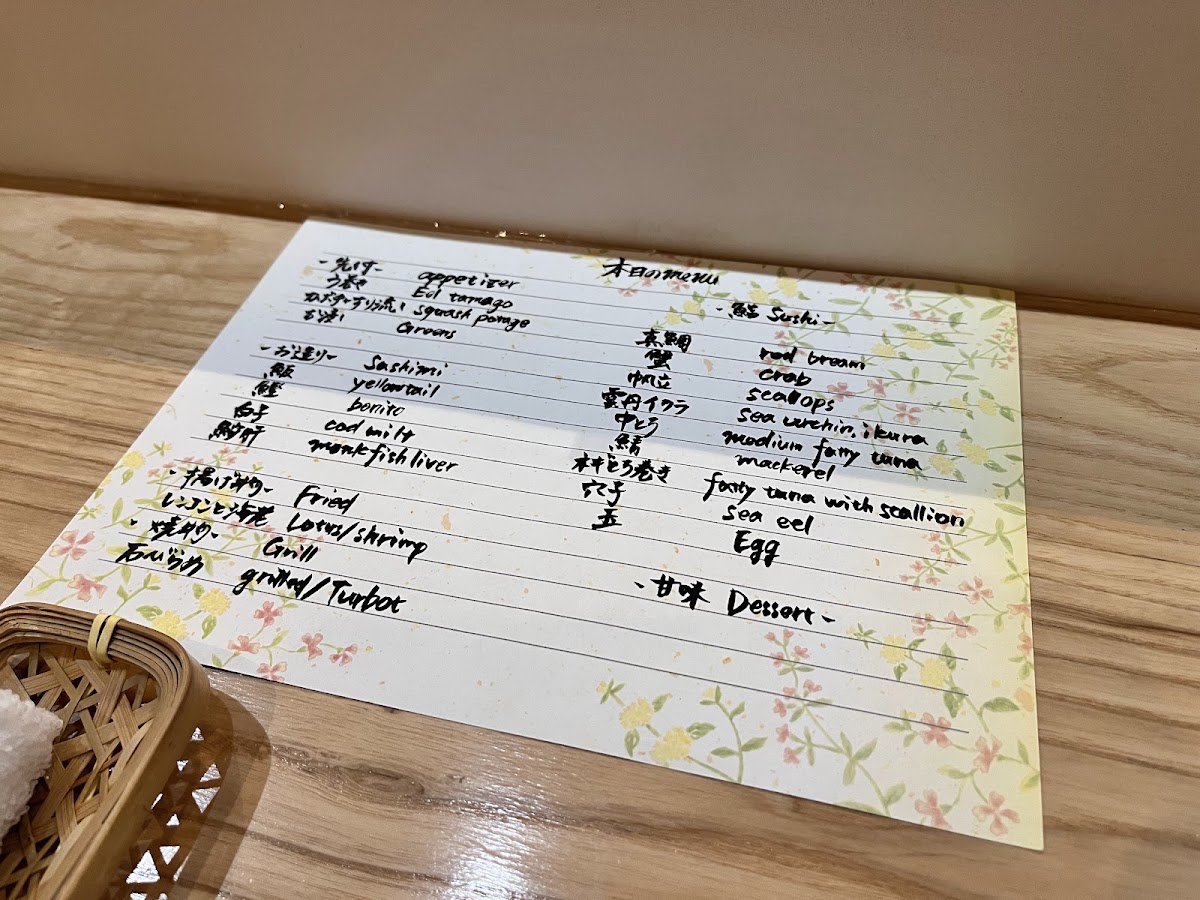 本日のmenu
-先付- appetizer
う巻き Eel tamago
カボチャすり流し squash potage
お浸し Greens
-お造り- Sashimi
鰤 yellowtail
鰹 bonito
白子 cod milt
鮟肝 monkfish liver
-揚げ物- Fried
レンコンと海老 Lotus/shrimp
-焼物- Grill
石びらめ grilled/Turbot
-鮨 Sushi-
真鯛 red bream
蟹 crab
帆立 scallops
雲丹イクラ sea urchin, ikura
中とろ medium fatty tuna
鯖 mackerel
ネギとろ巻き fatty tuna with scallion
穴子 sea eel
玉 Egg
-甘味 Dessert-